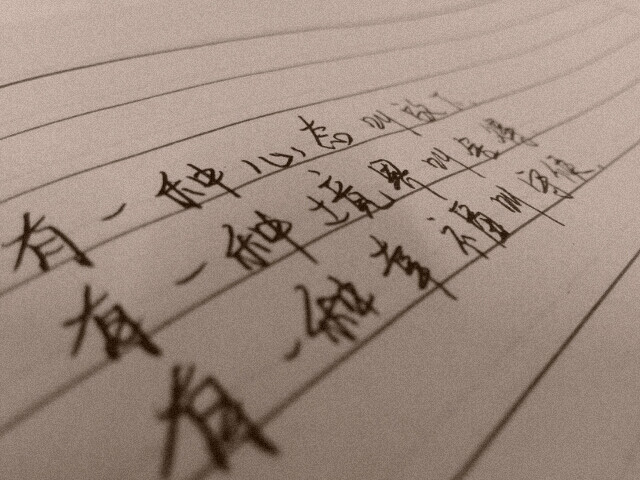 有一种心态叫放下
有一种境界叫舍得
有一种幸福叫